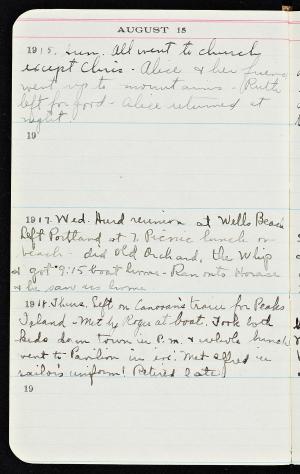 AUGUST 15
1915. Sun. All went to church
except Chris - Alice & her friend
went up to mountains - Ruth
left for good - Alice returned at
night.
19
1917. Wed. Hurd reunion at Wells Beach
Left Portland at 7. Picnic lunch on
beach - did Old Orchard, the Whip
& got 9:15 boat home - Ran onto Horace
& he saw us home
1918. Thurs. Left on train for Peaks
Island - Met by at boat. Took both
kids down town in P.M. & whole bunch
went to Pavilion in eve. Met in
sailor's uniform! Retired late!
19